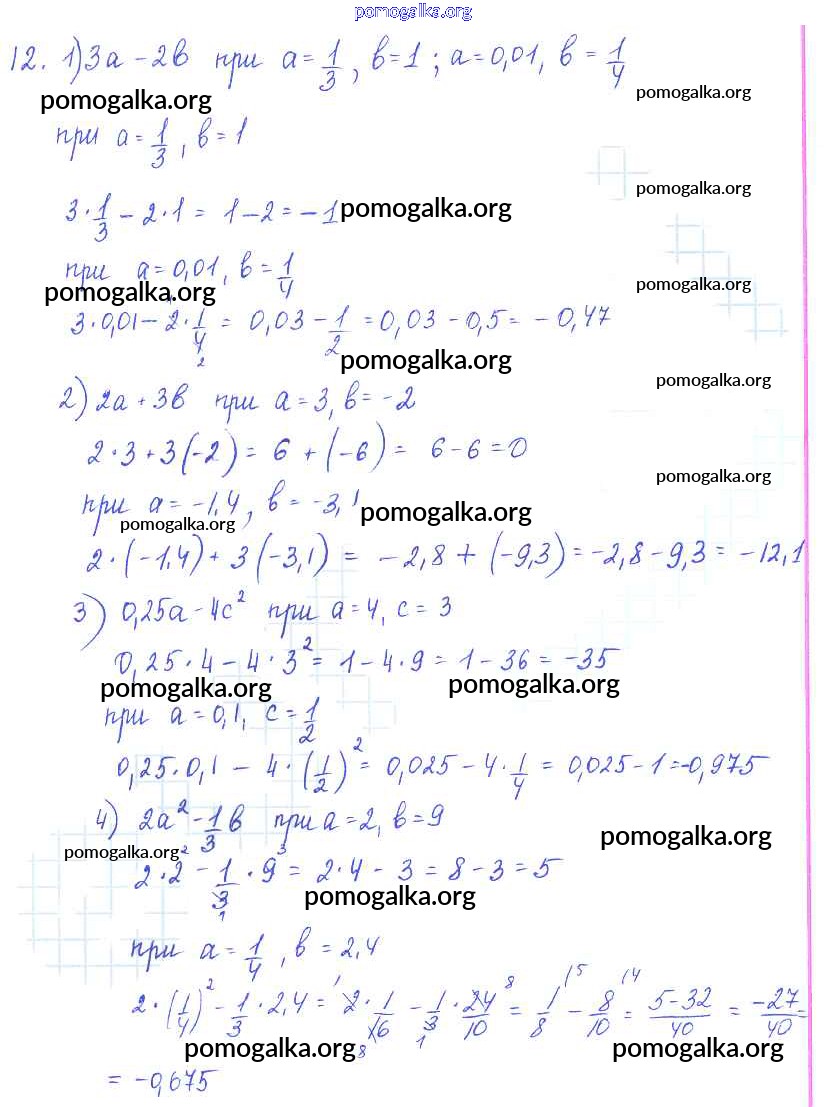 pomogalka.org
12. 1) 3a - 2b при a = 1/3, b = 1; a = 0,01, b = 1/4
pomogalka.org pomogalka.org
при a = 1/3, b = 1
pomogalka.org
3 · 1/3 - 2 · 1 = 1 - 2 = -1 pomogalka.org
при a = 0,01, b = 1/4
pomogalka.org pomogalka.org
3 · 0,01 - 2 · 1/4 2 = 0,03 - 1/2 = 0,03 - 0,5 = -0,47
pomogalka.org
pomogalka.org
2) 2a + 3b при a = 3, b = -2
2 · 3 + 3(-2) = 6 + (-6) = 6 - 6 = 0
pomogalka.org
при a = -1,4, b = -3,1
pomogalka.org pomogalka.org
2 · (-1,4) + 3(-3,1) = -2,8 + (-9,3) = -2,8 - 9,3 = -12,1
3) 0,25a - 4c² при a = 4, c = 3
0,25 · 4 - 4 · 3² = 1 - 4 · 9 = 1 - 36 = -35
pomogalka.org pomogalka.org
при a = 0,1, c = 1/2
0,25 · 0,1 - 4 · (1/2)² = 0,025 - 4 · 1/4 = 0,025 - 1 = -0,975
4) 2a² - 1/3 b при a = 2, b = 9
pomogalka.org pomogalka.org
2 · 2² - 1/3 1 · 9 3 = 2 · 4 - 3 = 8 - 3 = 5
pomogalka.org
при a = 1/4, b = 2,4
2 · (1/4)² - 1/3 · 2,4 = 2 1 · 1/16 8 - 1/3 1 · 24 8/10 = 1/8 /5 - 8/10 /4 = 5-32/40 = -27/40 =
pomogalka.org pomogalka.org
= -0,675